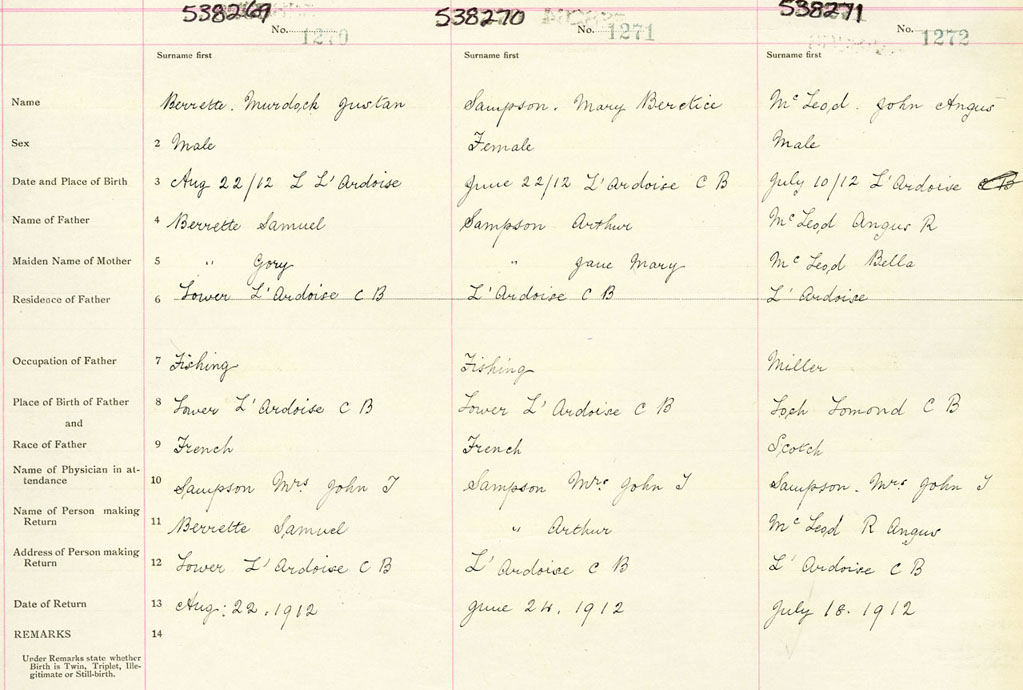 538269 538270 538271
No. 1270 No. 1271 No. 1272
Surname first Surname first Surname first
Name Berrette. Murdock Gustan Sampson. Mary Berctice Mc Leod. John Angus
Sex 2 Male Female Male
Date and Place of Birth 3 Aug 22/12 L L'Ardoise June 22/12 L'Ardoise C B July 10/12 L'Ardoise
Name of Father 4 Berrette Samuel Sampson Arthur Mc Leod Angus R
Maiden Name of Mother 5 " Gory " Jane Mary Mc Leod Bella
Residence of Father 6 Lower L'Ardoise C B L'Ardoise C B L'Ardoise
Occupation of Father 7 Fishing Fishing Miller
Place of Birth of Father 8 Lower L'Ardoise C B Lower L'Ardoise C B Loch Lomond C B
and
Race of Father 9 French French Scotch
Name of Physician in at-
tendance 10 Sampson Mrs John T Sampson Mrs John T Sampson. Mrs John T
Name of Person making
Return 11 Berrette Samuel " Arthur Mc Leod R Angus
Address of Person making
Return 12 Lower L'Ardoise C B L'Ardoise C B L'Ardoise C B
Date of Return 13 Aug: 22. 1912 June 24. 1912 July 18. 1912
REMARKS 14
Under Remarks state whether
Birth is Twin, Triplet, Ille-
gitimate or Still-birth.